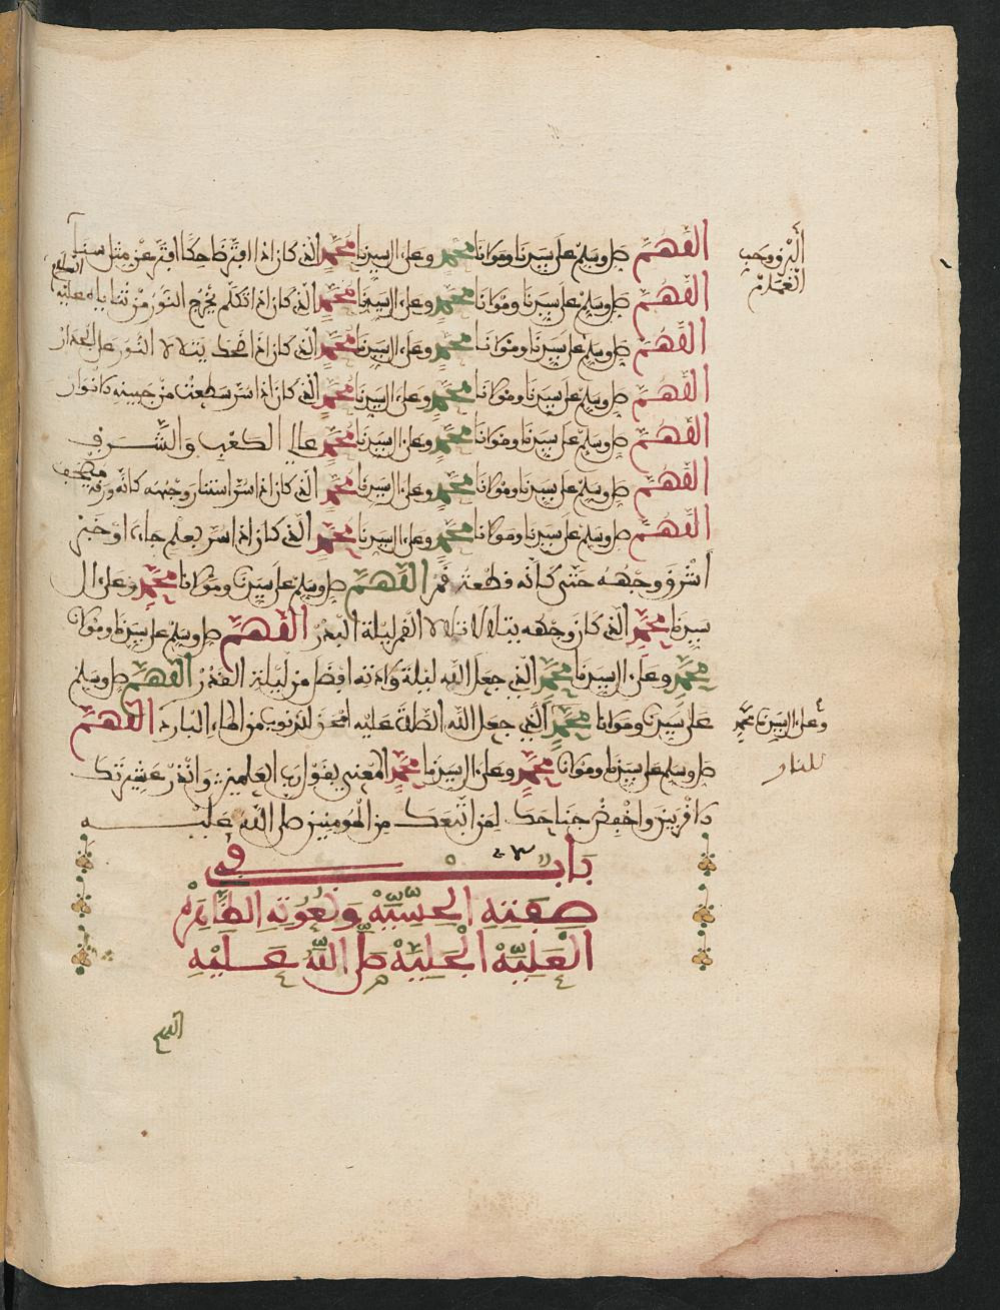 اللهم صل وسلم على سيدنا ومولانا محمد وعلى ال سيدنا محمد الذي كان اذا افتر ضاحكا افتر عن مثل سنا
البرق وحب
الغمام
اللهم صل وسلم على سيدنا ومولانا محمد وعلى ال سيدنا محمد الذي كان اذا تكلم يخرج النور من ثناياه عليه السلام
اللهم صل وسلم على سيدنا ومولانا محمد وعلى ال سيدنا محمد الذي كان اذا ضحك يتلالا النور على الجدار
اللهم صل وسلم على سيدنا ومولانا محمد وعلى ال سيدنا محمد الذي كان اذا سر سطعت من جبينه الانوار
اللهم صل وسلم على سيدنا ومولانا محمد وعلى ال سيدنا محمد عالي الكعب والشرف
اللهم صل وسلم على سيدنا ومولانا محمد وعلى ال سيدنا محمد الذي كان اذا سر استنار وجهه كانه ورقة مصحف
اللهم صل وسلم على سيدنا ومولانا محمد وعلى ال سيدنا محمد الذي كان اذا سر بعلم جاء او خبر
اشرق وجهه حتى كانه قطعة قمر اللهم صل وسلم على سيدنا ومولانا محمد وعلى ال
سيدنا محمد الذي كان وجهه يتلالا تلالا القمر ليلة البدر اللهم صل وسلم على سيدنا ومولانا
محمد وعلى ال سيدنا محمد الذي جعل الله ليلة ولادته افضل من ليلة القدر اللهم صل وسلم
على سيدنا ومولانا محمد الذي جعل الله الصلاة عليه امحق للذنوب من الماء البارد اللهم
وعلى ال سيدنا محمد
للنار
صل وسلم على سيدنا ومولانا محمد وعلى ال سيدنا محمد المعني بقول رب العلمين وانذر عشيرتك
الاقربين واخفض جناحك لمن اتبعك من المومنين صلى الله عليه
باب في
صفته الحسية ونعوته الطاهرة
العلية الجلية صلى الله عليه
اللهم